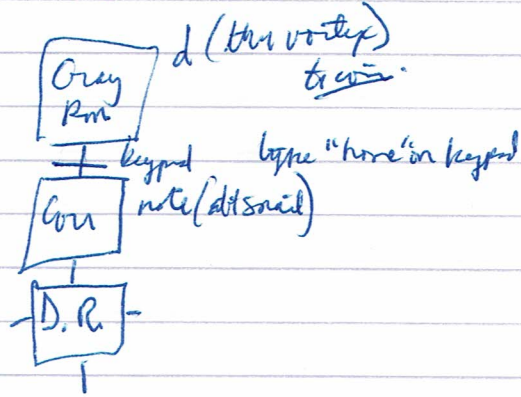 Gray d (thru vortex)
Rm to win.
keypad type "home" on keypad
Corr note (abt snail)
D. R.